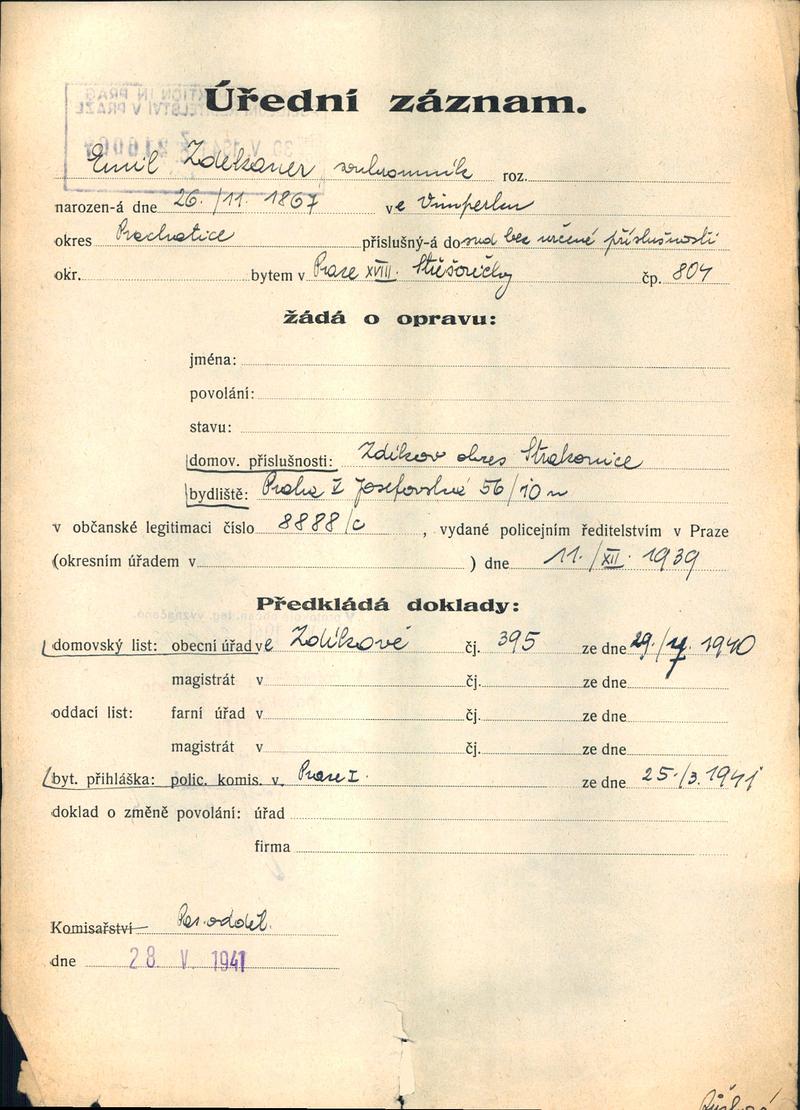 Úřední záznam.
Emil Zdekauer, soukromník roz.
narozen-á dne 26./11. 1867 ve Vimperku
okres Prachatice příslušný-á do sud bez určené příslušnosti
okr. bytem v Praze XVIII. Střešovičky čp. 804
žádá o opravu:
jména:
povolání:
stavu:
domov. příslušnosti: Zdíkov okres Strakonice
bydliště: Praha I Josefovská 56/10 n
v občanské legitimaci číslo 8888/c , vydané policejním ředitelstvím v Praze
(okresním úřadem v ) dne 11./XII. 1939
Předkládá doklady:
domovský list: obecní úřad ve Zdíkově čj. 395 ze dne 29./ 1940
magistrát v čj. ze dne
oddací list: farní úřad v čj. ze dne
magistrát v čj. ze dne
byt. přihláška: polic. komis. v. Praze I. ze dne 25./3. 1941
doklad o změně povolání: úřad
firma
Komisařství odděl.
dne 28. V. 1941